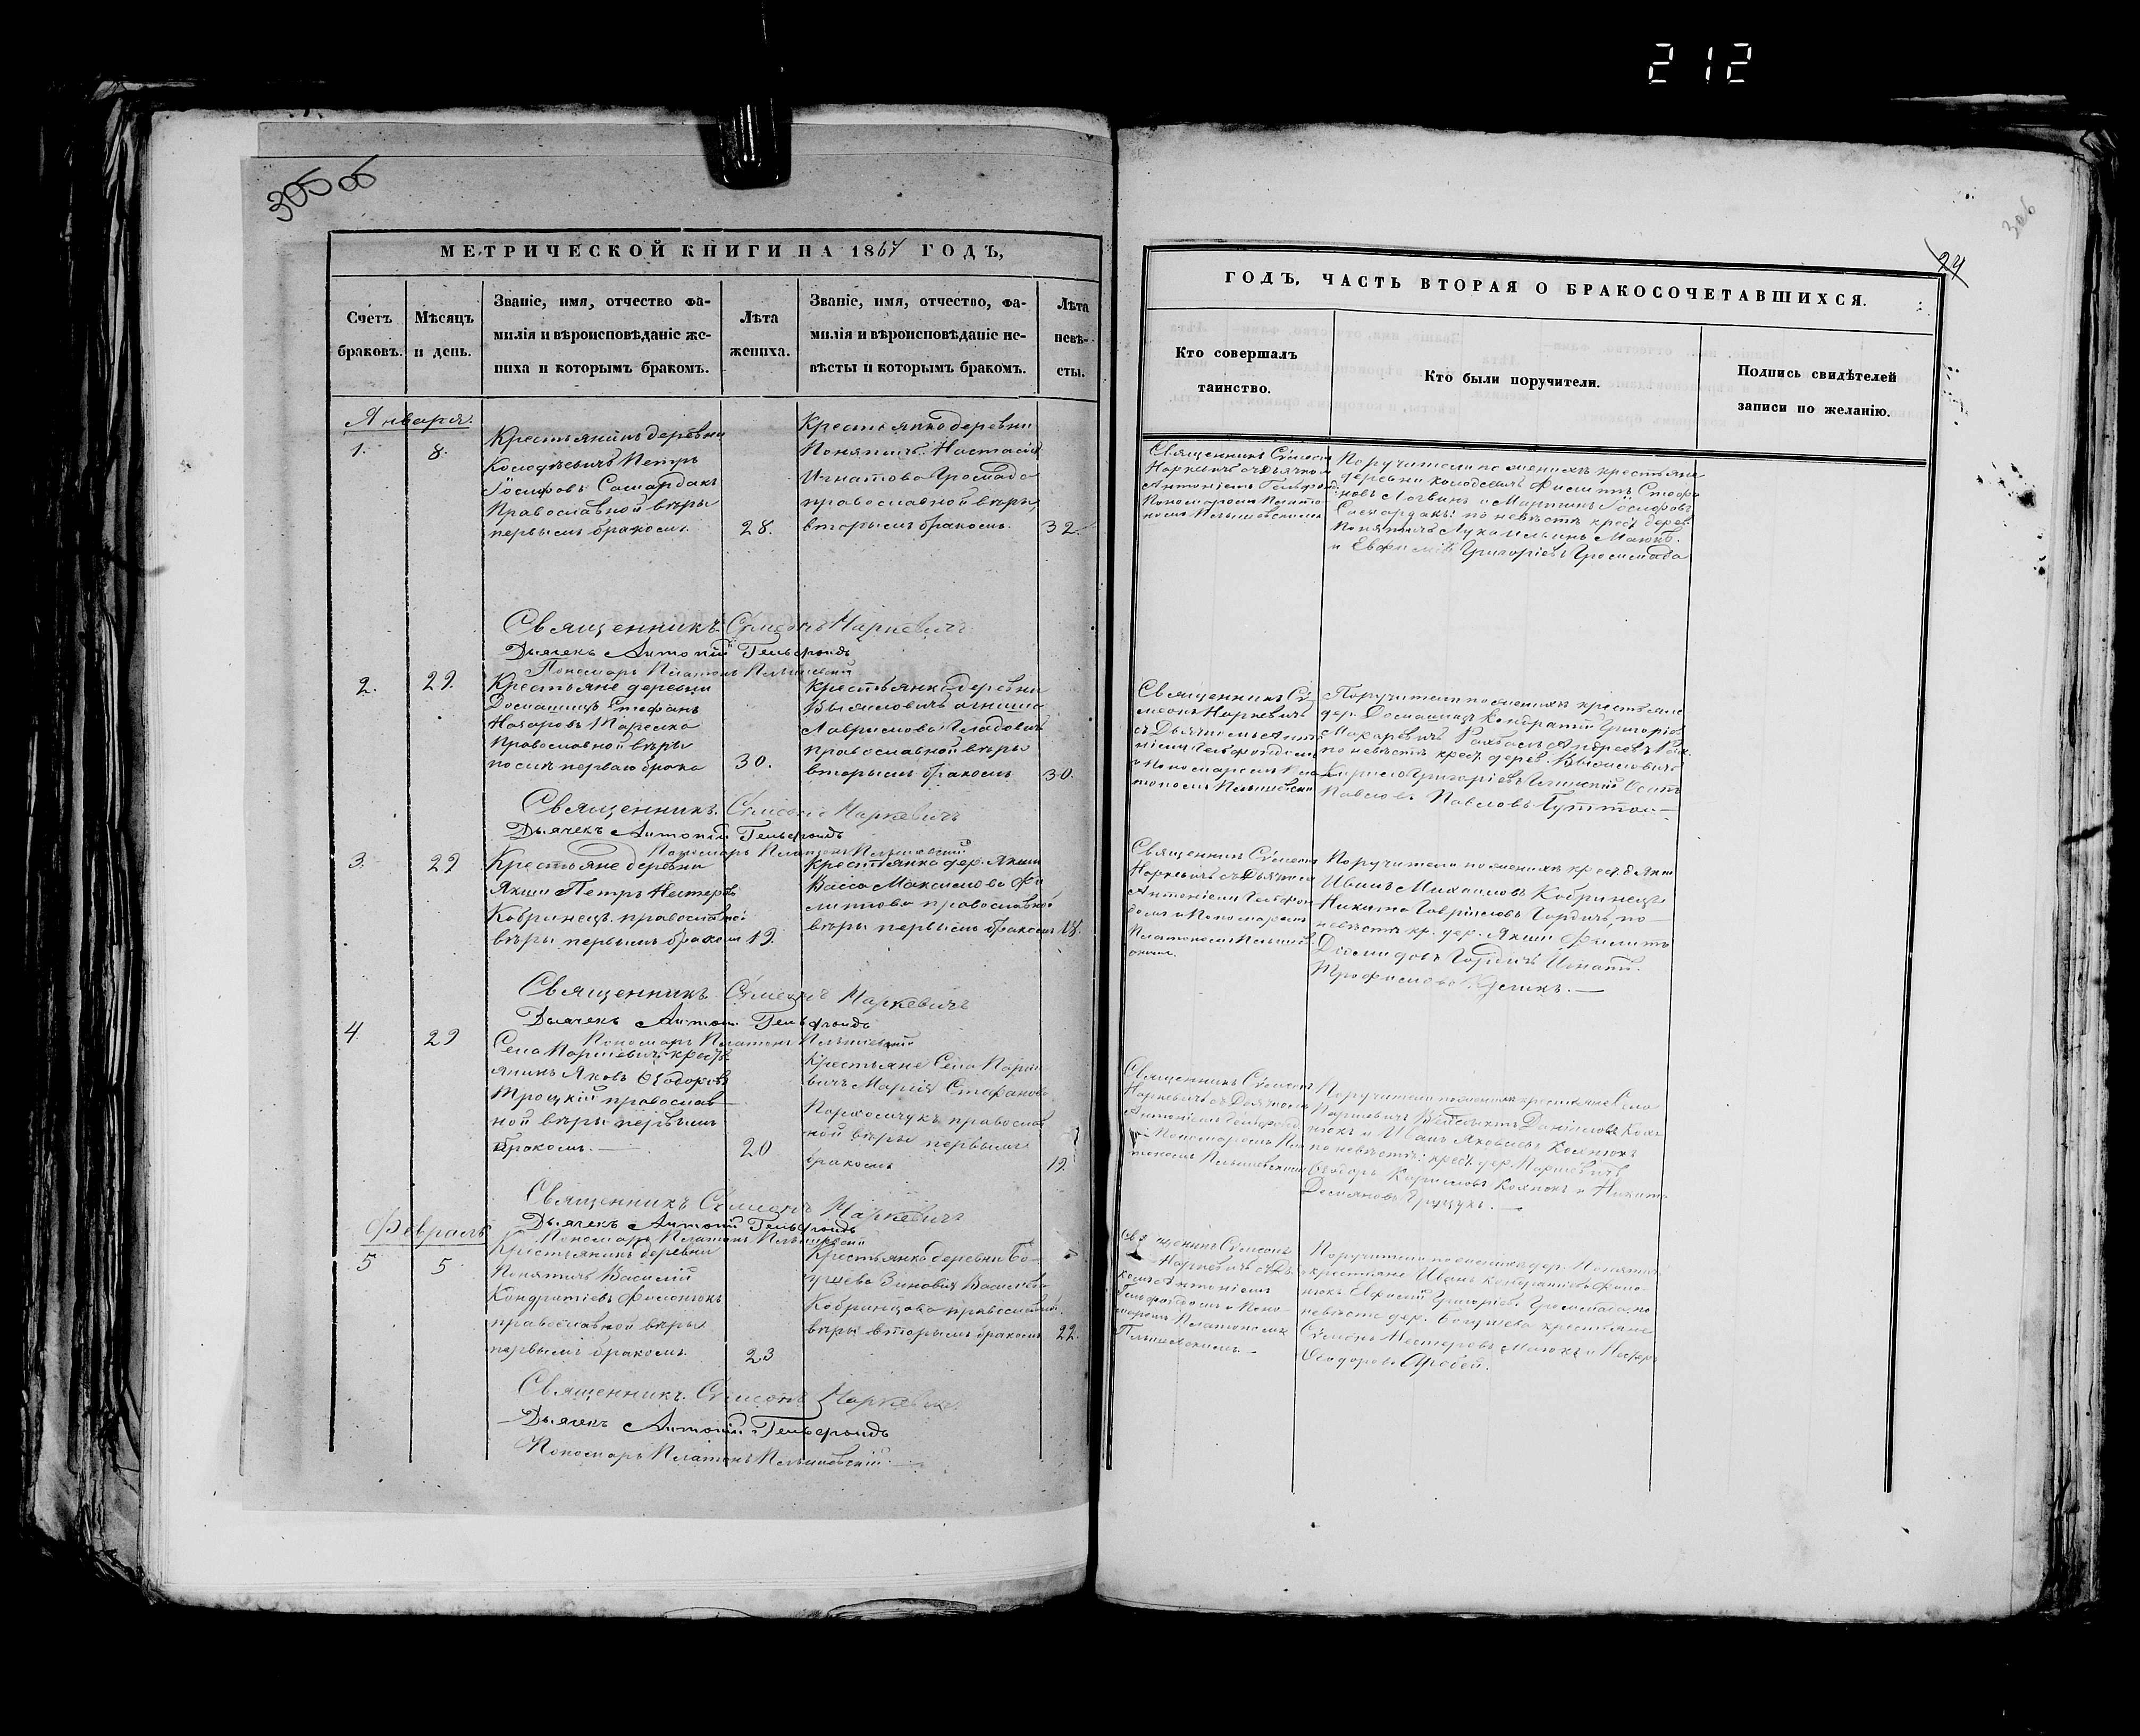 212
305 об
306
24
МЕТРИЧЕСКОЙ КНИГИ НА 1867 ГОДЪ,
Счетъ браковъ.
Мѣсяцъ и день.
Званіе, имя, отчество фа-
милія и вѣроисповѣданіе же-
ниха и которымъ бракомъ.
Лѣта жениха.
Званіе, имя, отчество, фа-
милія и вѣроисповѣданіе не-
вѣсты и которымъ бракомъ.
Лѣта
невѣ-
сты.
Января.
1.
8.
Крестьянинъ деревни
Колодѣевичъ Петръ
Іосифовъ Самардакъ
Православной вѣры
первымъ бракомъ.
28.
Крестьянка деревни
Понятичъ Настасія
Игнатова Громада
православной вѣры,
вторымъ бракомъ.
32.
Священникъ Сѵмеонъ Маркевичъ
Дьячекъ Антоній Гельфоидъ
Пономарь Платонъ
2.
29.
Крестьяне деревни
Домашицъ Стефанъ
Назаровъ
Православной вѣры
послѣ перваго брака
30.
Крестьянка деревни
православной вѣры
вторымъ бракомъ
30.
Священникъ Сѵмеонъ Маркевичъ
Дьячекъ Антоній Гельфоидъ
Пономарь Платонъ
3.
29
Крестьяне деревни
Якши Петръ Нестеровъ
Кобринецъ православной
вѣры первымъ бракомъ
19.
Крестьянка дер. Якши
Васса Максимова Фи
липпова православной
вѣры первымъ бракомъ
18.
Священникъ Сѵмеонъ Маркевичъ
Дьячекъ Антоній Гельфоидъ
Пономарь Платонъ
4.
29
Села Паршевичъ крестъ-
янинъ Яковъ Ѳеодоровъ
Троцкій православ
ной вѣры первымъ
бракомъ.
20
Крестьяне Села Парше
вичъ Марія Стефанова
православ
ной вѣры первымъ
бракомъ
19
Священникъ Сѵмеонъ Маркевичъ
Дьячекъ Антоній Гельфоидъ
Пономарь Платонъ
Февраль
5
5
Крестьянинъ деревни
Понятичъ Василій
Кондратіевъ Филонюкъ
православной вѣры
первымъ бракомъ.
23
Крестьянка деревни Бо-
гушева Зиновія Васильева
Кобринцова православной
вѣры вторымъ бракомъ
22.
Священникъ Сѵмеонъ Маркевичъ
Дьячекъ Антоній Гельфоидъ
Пономарь Платонъ
ГОДЪ, ЧАСТЬ ВТОРАЯ О БРАКОСОЧЕТАВШИХСЯ.
Кто совершалъ
таинство.
Кто были поручители.
Подпись свидѣтелей
записи по желанію.
Священникъ Сѵмеонъ
Маркевичъ съ Дьячкомъ
Антоніемъ Гельфоид
Пономаремъ Плато
номъ
Поручители по женихѣ крестьяне
деревни Колодѣевичъ Филиппъ Стефа
новъ Логвинъ и Мартинъ Іосифовъ
Самардакъ: по невѣстѣ крест. дерев.
Понятичъ Лука Ильинъ
и Евфимій Григоріевъ Громмада
Священникъ Сѵ
меонъ Маркевичъ
съ Дьячкомъ Анто
ніемъ Гельфоидомъ
и Пономаремъ Пла
тономъ
Поручители по женихѣ крестьяне
дер. Домашицъ Кондратій Григоріевъ
Макаревичъ
по невѣстѣ крест. дерев.
Кирило Григоріевъ
Павловъ
Священникъ Сѵмеонъ
Маркевичъ съ Дьячкомъ
Антоніемъ Гельфои
домъ и Пономаремъ
Платономъ
Поручители по женихѣ крест. д. Якши
Иванъ Михаиловъ Кобринецъ
Никита Гавріиловъ Гордичъ, по
невѣстѣ кр. дер. Якши Филиппъ
Гордичъ Игнатій
Трофимовъ
Священникъ Сѵмеонъ
Маркевичъ съ Дьячкомъ
Антоніемъ Гельфоид
Пономаремъ Пла
тономъ
Поручители по женихѣ крестьяне Села
Паршевичъ Даніиловъ Колъ
нюкъ и Иванъ Яковлевъ
по невѣстѣ: крест. дер. Паршевичъ
Ѳеодоръ Кириловъ и Никита
Демьяновъ
Священникъ Сѵмеонъ
Маркевичъ съ Дьяч
комъ Антоніемъ
Гельфоидомъ и Поно-
маремъ Платономъ
Поручители по женихѣ дер. Понятичъ
крестьяне Иванъ Кондратіевъ Фило-
нюкъ Евфимій Григоріевъ Громмада, по
невѣстѣ дер. Богушева крестьяне
Сѵмеонъ Нестеровъ
Ѳеодоровъ